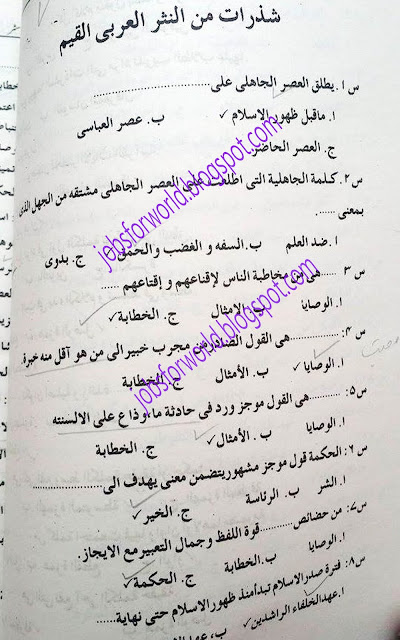 شذرات من النثر العربى القيم
س١. يطلق العصر الجاهلى على....................
ا. ماقبل ظهور الاسلام ✓ ب. عصر العباسى
ج. العصر الحاضر
س٢. كلمة الجاهلية التى اطلقت على العصر الجاهلى مشتقه من الجهل الذى
بمعنى ......
ا. ضد العلم ب. السفه و الغضب والحمق ج. بدوى
س٣ ......هى فن مخاطبة الناس لإقناعهم و إقتاعهم ......
ا. الوصايا ب. الامثال ج. الخطابة ✓
س٤: ..........هى القول الصادر من مجرب خبير الى من هو أقل منه خبرة.
ا. الوصايا ✓ ب. الأمثال ج. الخطابة
س٥: ..........هى القول موجز ورد فى حادثة ما وذاع على الالسنته
ا. الوصايا ب. الأمثال ✓ ج. الخطابة
س٦: الحكمة قول موجز مشهوريتضمن معنى يهدف الى..............
ا. الشر ب. الرئاسة ج. الخير ✓
س٧: من خصائص..........قوة اللفظ وجمال التعبير مع الايجاز.
ا. الوصايا ب. الخطابة ج. الحكمة ✓
س٨: فترة صدرالاسلام تبدأمنذ ظهور الاسلام حتى نهاية......
ا. عهدالخلفاء الراشدين ✓
jobsforworld.blogspot.com
jobsforworld.blogspot.com